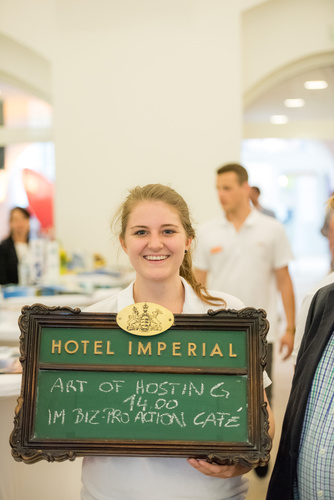 HOTEL IMPERIAL
ART OF HOSTING
14.00
IM BIZ-PRO ACTION CAFÉ